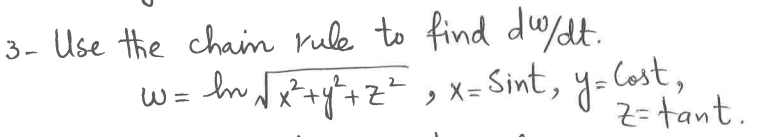 3- Use the chain rule to find dw/dt.
w = ln √x²+y²+z² , x= Sint, y= Cost,
z= tant.